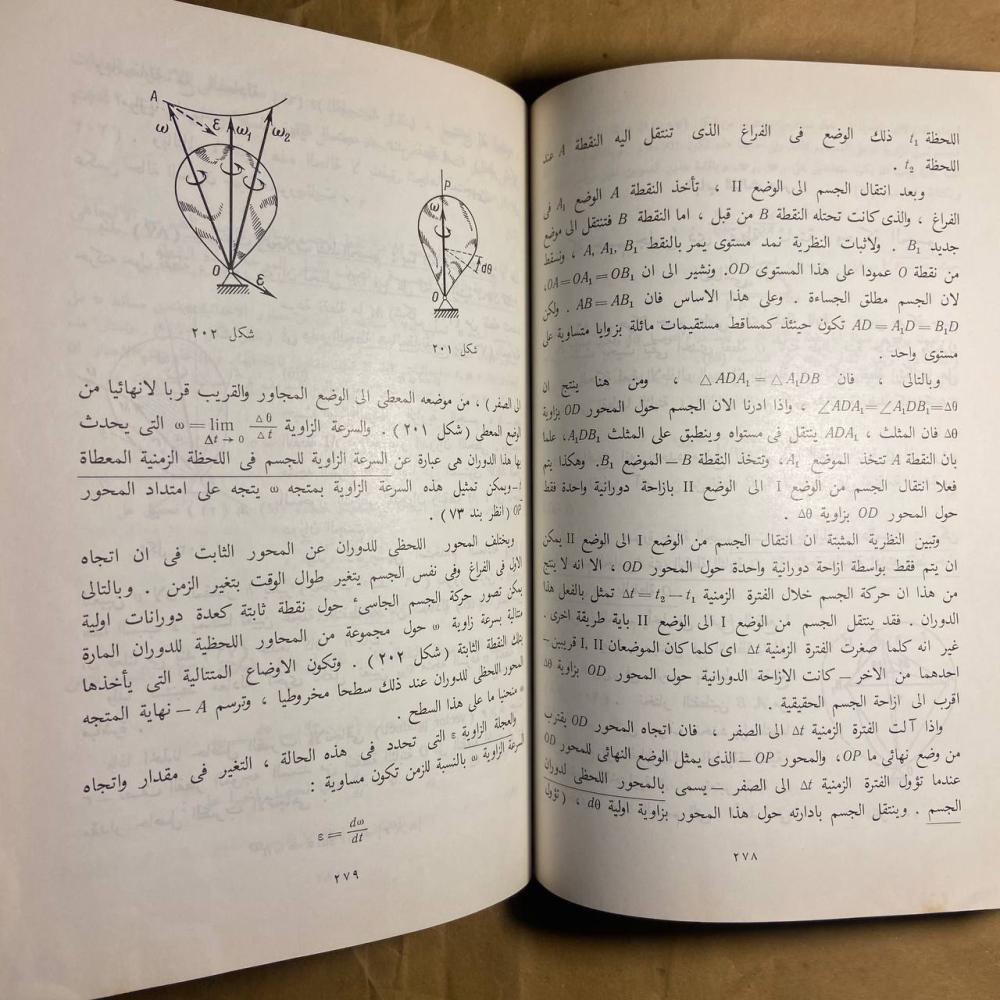 اللحظة t₁ ذلك الوضع فى الفراغ الذى تنتقل اليه النقطة A عند
اللحظة t₂ .
وبعد انتقال الجسم الى الوضع II ، تأخذ النقطة A الوضع A₁ فى
الفراغ ، والذى كانت تحتله النقطة B من قبل ، اما النقطة B فتنتقل الى موضع
جديد B₁ . ولاثبات النظرية نمد مستوى يمر بالنقط A, A₁, B₁ ، ونسقط
من نقطة O عمودا على هذا المستوى OD. ونشير الى ان OA=OA₁=OB₁،
لان الجسم مطلق الجساءة . وعلى هذا الاساس فان AB=AB₁ . ولكن
AD=A₁D=B₁D تكون حينئذ كمساقط مستقيمات مائلة بزوايا متساوية على
مستوى واحد .
وبالتالى ، فان △ADA₁=△A₁DB ، ومن هنا ينتج ان
∠ADA₁=∠A₁DB₁=Δθ ، واذا ادرنا الان الجسم حول المحور OD بزاوية
Δθ فان المثلث ، ADA₁ ينتقل فى مستواه وينطبق على المثلث A₁DB₁، علما
بان النقطة A تتخذ الموضع A₁، وتتخذ النقطة B — الموضع B₁. وهكذا يتم
فعلا انتقال الجسم من الوضع I الى الوضع II بازاحة دورانية واحدة فقط
حول المحور OD بزاوية Δθ .
وتبين النظرية المثبتة ان انتقال الجسم من الوضع I الى الوضع II يمكن
ان يتم فقط بواسطة ازاحة دورانية واحدة حول المحور OD ، الا انه لا ينتج
من هذا ان حركة الجسم خلال الفترة الزمنية Δt=t₂—t₁ تمثل بالفعل هذا
الدوران . فقد ينتقل الجسم من الوضع I الى الوضع II باية طريقة اخرى .
غير انه كلما صغرت الفترة الزمنية Δt اى كلما كان الموضعان I, II قريبين —
احدهما من الاخر — كانت الازاحة الدورانية حول المحور OD بزاوية Δθ
اقرب الى ازاحة الجسم الحقيقية .
واذا آلت الفترة الزمنية Δt الى الصفر ، فان اتجاه المحور OD يقترب
من وضع نهائى ما OP، والمحور OP — الذى يمثل الوضع النهائى للمحور OD
عندما تؤول الفترة الزمنية Δt الى الصفر — يسمى بالمحور اللحظى لدوران
الجسم . وينتقل الجسم بادارته حول هذا المحور بزاوية اولية dθ ، (تؤول
٢٧٨
A
ω
ε
ω₁
ω₂
O
ε
شكل ٢٠٢
P
ω
dθ
O
شكل ٢٠١
الى الصفر) ، من موضعه المعطى الى الوضع المجاور والقريب قربا لانهائيا من
الوضع المعطى (شكل ٢٠١) . والسرعة الزاوية ω=lim Δt→0 Δθ/Δt التى يحدث
بها هذا الدوران هى عبارة عن السرعة الزاوية للجسم فى اللحظة الزمنية المعطاة
t — ويمكن تمثيل هذه السرعة الزاوية بمتجه ω يتجه على امتداد المحور
OP (انظر بند ٧٣) .
ويختلف المحور اللحظى للدوران عن المحور الثابت فى ان اتجاه
الاول فى الفراغ وفى نفس الجسم يتغير طوال الوقت بتغير الزمن . وبالتالى
يمكن تصور حركة الجسم الجاسىء حول نقطة ثابتة كعدة دورانات اولية
متتالية بسرعة زاوية ω حول مجموعة من المحاور اللحظية للدوران المارة
بتلك النقطة الثابتة (شكل ٢٠٢) . وتكون الاوضاع المتتالية التى يأخذها
المحور اللحظى للدوران عند ذلك سطحا مخروطيا ، وترسم A — نهاية المتجه
ω منحنيا ما على هذا السطح .
والعجلة الزاوية ε التى تحدد فى هذه الحالة ، التغير فى مقدار واتجاه
السرعة الزاوية ω بالنسبة للزمن تكون مساوية :
ε = dω/dt
٢٧٩